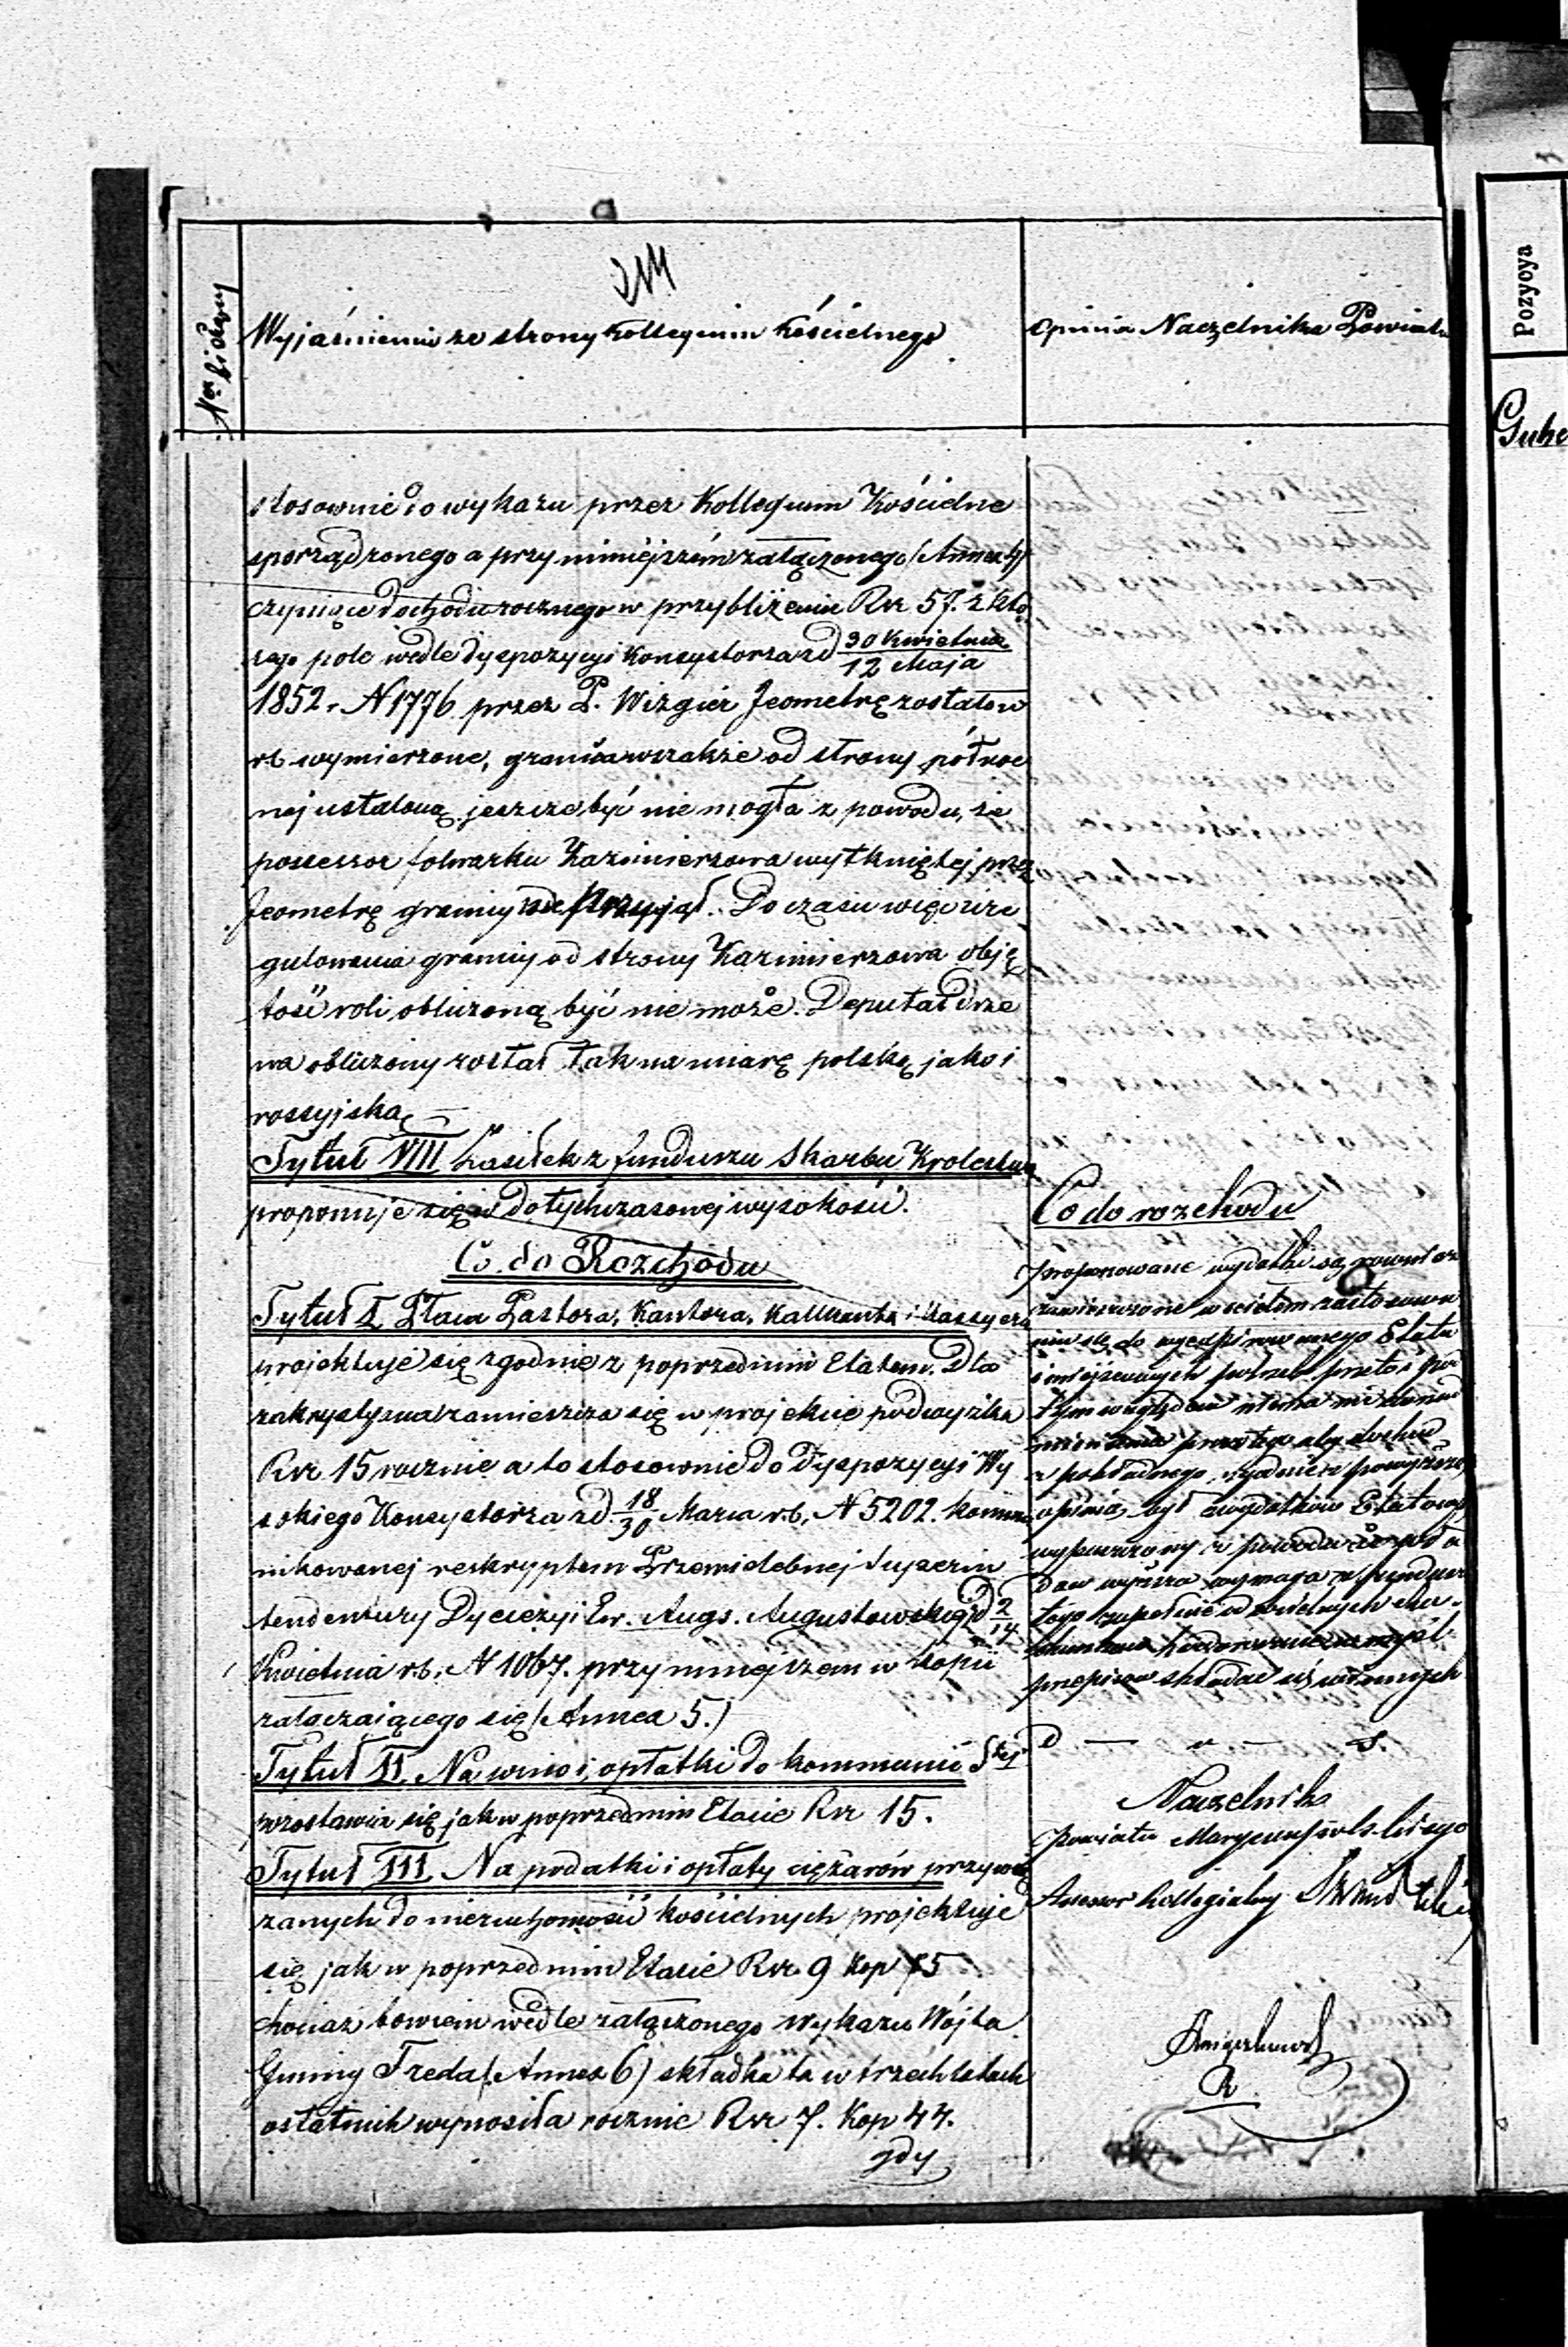 214
Ner bieżący
Wyjaśnienie ze strony Kollegium Kościelnego
Opinia Naczelnika Powiatu
stosownie do wykazu przez Kollegium Kościelne
sporządzonego a przy niniejszém załączonego (Annex 4)
czyniące dochodu rocznego w przybliżeniu Rsr 57. z któ
rego pole wedle dyspozycyi Konsystorza z d 30 Kwietnia / 12 Maja
1852 r N 1776 przez P. Wizgier Jeometrę zostało w
r b wymierzone, granica wszakże od strony północ
nej ustaloną jeszcze być nie mogła z powodu, że
possessor folwarku Kazimierzowa wytkniętej przez
Jeometrę granicy nie przyjął. Do czasu więc ure
gulowania granicy od strony Kazimierzowa obję
tość roli obliczoną być nie może. Deputat drze
wa obliczony został tak na miarę polską jako i
rossyjską
Tytuł VIII Zasiłek z funduszu Skarbu Krolestwa
proponuje się w dotychczasowej wysokości.
Co do Rozchodu
Tytuł I Płaca Pastora, Kantora, Kalkanta i Kassyera
projektuje się zgodnie z poprzednim Etatem. Dla
zakrystyana zamieszcza się w projekcie podwyżka
Rsr 15 rocznie a to stosownie do dyspozycyi Wy
sokiego Konsystorza z d 18/30 Marca r.b. N 5202. kommu
nikowanej reskryptem Przewielebnej Superin
tendentury Dyecezyi Ew. Augs. Augustowskiej d 2/14
Kwietnia r.b. N 1067. przy niniejszem w kopii
załączającego się (Annex 5.)
Tytuł II. Na wino i opłatki do kommunii Stej
pozostawia się jak w poprzednim Etacie Rsr 15.
Tytuł III Na podatki i opłaty ciężarów przywią
zanych do nieruchomości kościelnych projektuje
się jak w poprzednim Etacie Rsr. 9 Kop 75
chociaż bowiem wedle załączonego wykazu Wójta
Gminy Freda (Annex 6) składka ta w trzech latach
ostatnich wynosiła rocznie Rsr 7. Kop 44.
gdy
Co do rozchodu
proponowane wydatki są
zamieszczone w zastosowa
niu się do Etatu
i miejscowych potrzeb przeto i pod
tym względem niema nic do nad
mienienia prócz tego aby dochód
z pokładnego, zgodnie z powyższą
opinią, był z wydatków Etatowych
wypuszczony z powodu że
Naczelnik
Powiatu Maryampolskiego
Assesor Kollegialny
Pozycya
Gube